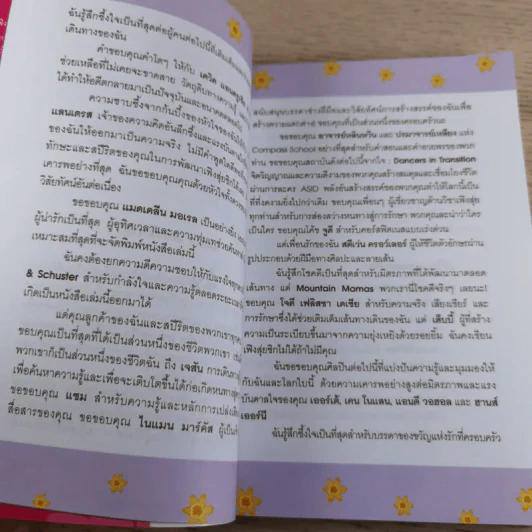 ฉันรู้สึกซึ้งใจเป็นที่สุดต่อผู้คนต่อไปนี้
เดินทางของฉัน
คำขอบคุณคำโตๆ ให้กับ เดวิด
ช่วยเหลือที่ไม่เคยจะขาดสาย วัตถุดิบทางความรู้
ได้ทำให้อดีตกลายมาเป็นปัจจุบันและอนาคต
ความซาบซึ้งจากก้นบึ้งของหัวใจของฉัน
แลนเดรส เจ้าของความคิดอันลึกซึ้งและแรงบันดาล
ของฉันให้ออกมาเป็นความจริง ไม่มีคำพูดใดที่
ทักษะและสปิริตของคุณในการพัฒนาเฟิงสุ่ยซิกไ
เคารพอย่างที่สุด ฉันขอขอบคุณคุณด้วยหัวใจทั้ง
วิสัยทัศน์อันต่อเนื่อง
ขอขอบคุณ แมดเดลีน มอเรล เป็นอย่างยิ่ง
ผู้น่ารักเป็นที่สุด ผู้อุทิศเวลาและความทุ่มเทช่วยค้นหา
เหมาะสมที่สุดที่จะจัดพิมพ์หนังสือเล่มนี้
ฉันคงต้องยกความดีความชอบให้กับแรงใจ
& Schuster สำหรับกำลังใจและความรู้ตลอดระยะเวลา
เกิดเป็นหนังสือเล่มนี้ออกมาได้
แด่คุณลูกค้าของฉันและสปิริตของพวกเขาทุก
ขอบคุณเป็นที่สุดที่ได้เป็นส่วนหนึ่งของชีวิตพวกเขา
พวกเขาก็เป็นส่วนหนึ่งของชีวิตฉัน ถึง เจสัน การเดินทาง
เพื่อค้นหาความรู้และเพื่อจะเติบโตขึ้นได้ก่อเกิดหนทาง
ขอขอบคุณ แซม สำหรับความรู้และหลักการเปล่ง
สื่อสารของคุณ ขอขอบคุณ ไนแมน มาร์คัส ผู้เป็น
สนับสนุนบรรดาช่างฝีมือและวิสัยทัศน์การสร้างสรรค์ของฉันเพื่อ
สร้างความแตกต่าง ขอบคุณที่เป็นส่วนหนึ่งของครอบครัวนะ
ขอขอบคุณ อาจารย์หลินหวิน และ ปรมาจารย์เหลียง แห่ง
Compass School อย่างที่สุดสำหรับคำสอนและคำอวยพรของพวก
ท่าน ขอขอบคุณสถาบันดังต่อไปนี้จากใจ : Dancers in Transition
จิตวิญญาณและความดีงามของพวกคุณสร้างสมดุลและเชื่อมโยงชีวิต
ผ่านการละคร ASID พลังอันสร้างสรรค์ของพวกคุณทำให้โลกนี้เป็น
ที่ที่งดงามยิ่งไปกว่าเดิม ขอบคุณเพื่อนๆ ผู้เชี่ยวชาญด้านวิชาเฟิงสุ่ย
ทุกท่านสำหรับการส่องสว่างหนทางสู่การรักษา พวกคุณละน่าว่าใคร
เป็นใคร ขอบคุณ โค้ช จูดี้ สำหรับคอร์สฟิตเนสแบบเร่งด่วน
แด่เพื่อนรักของฉัน สตีเว่น ครอว์เลอร์ ผู้ให้ชีวิตตัวอักษรผ่าน
รูปประกอบด้วยฝีมือทางศิลปะและลายเส้น
ฉันรู้สึกโชคดีเป็นที่สุดสำหรับมิตรภาพที่ได้พัฒนามาตลอด
เส้นทาง แด่ Mountain Mamas พวกเรานี่โชคดีจริงๆ เลยนะ!
ขอบคุณ โจดี้ เฟลิสซา เคเซีย สำหรับความจริง เสียงเชียร์ และ
การรักษาซึ่งได้ช่วยเติมเต็มเส้นทางเดินของฉัน แด่ เด็บบี้ ผู้ที่สร้าง
ความเป็นระเบียบขึ้นมาจากความยุ่งเหยิงด้วยรอยยิ้ม ฉันคงเขียน
เฟิงสุ่ยซิกไม่ได้ถ้าไม่มีคุณ
ฉันขอขอบคุณศิลปินต่อไปนี้ที่แบ่งปันความรู้และมุมมองให้
กับฉันและโลกใบนี้ ด้วยความเคารพอย่างสูงส่งต่อมิตรภาพและแรง
บันดาลใจของคุณ เออร์เต้, เคน โนแลน, แอนดี วอฮอล และ ฮานส์
เออร์นี
ฉันรู้สึกซึ้งใจเป็นที่สุดสำหรับบรรดาของขวัญแห่งรักที่ครอบครัว